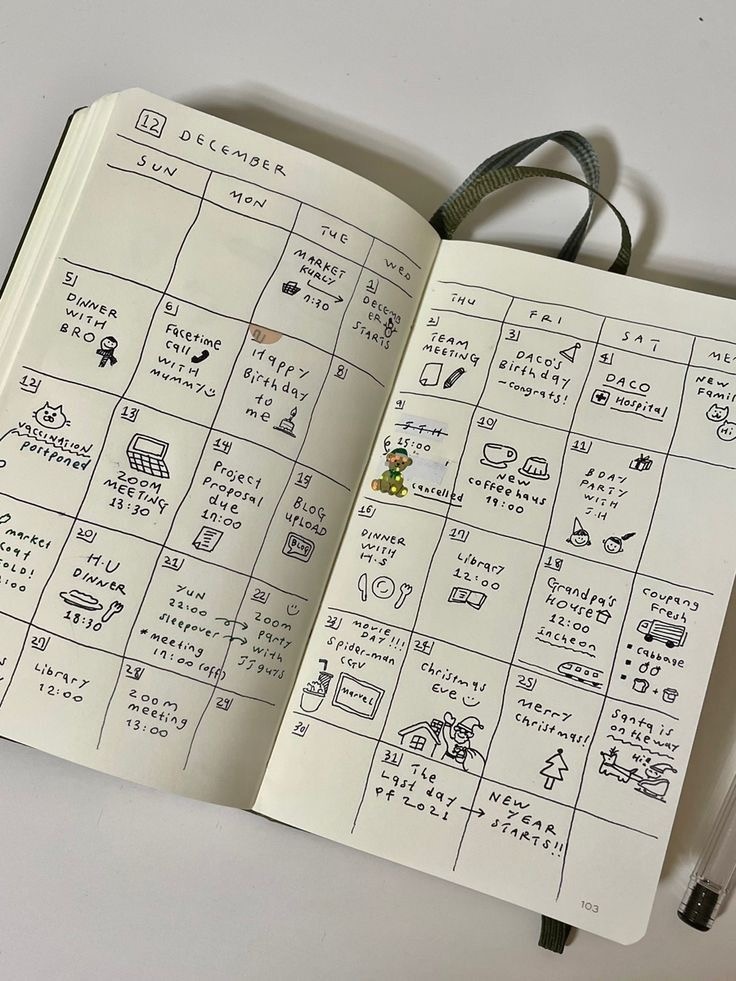 12 DECEMBER
SUN
MON
TUE
WED
MARKET
KURLY
7:30
1
DECEMB
ER
STARTS
5
DINNER
WITH
BRO
6
Facetime
call
WITH
MUMMY
7
Happy
Birthday
to
me
8
12
VACCINATION
postponed
13
ZOOM
MEETING
13:30
14
Project
Proposal
due
17:00
15
BLOG
UPLOAD
BLOG
market
20
H.U
DINNER
18:30
21
YUN
22:00
sleepover
*meeting
17:00 (off)
22
zoom
party
with
JJ guys
27
Library
12:00
28
zoom
meeting
13:00
29
THU
FRI
SAT
ME
2
TEAM
MEETING
3
DACO'S
Birthday
~congrats!
4
DACO
Hospital
NEW
Famil
Hi
9
J.T.H
15:00
cancelled
10
NEW
coffeehaus
19:00
11
BDAY
PARTY
WITH
J.H
16
DINNER
WITH
H.S
17
Library
12:00
18
Grandpa's
HOUSE
12:00
incheon
COUPANG
Fresh
cabbage
+
23
MOVIE
DAY!!!
Spider-man
CGV
MARVEL
24
Christmas
Eve
25
Merry
Christmas!
Santa is
on the way
30
31
The
Last day
of 2021
NEW
YEAR
STARTS!!
103